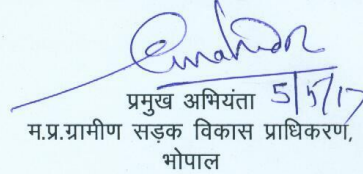 प्रमुख अभियंता 5/5/17
म.प्र.ग्रामीण सड़क विकास प्राधिकरण,
भोपाल